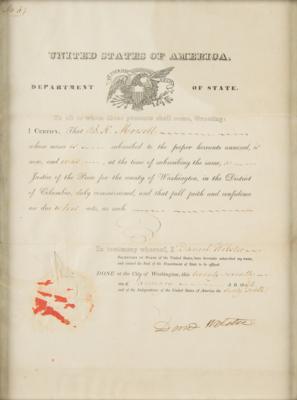 UNITED STATES OF AMERICA,
DEPARTMENT OF STATE.
To all to whom these presents shall come, Greeting:
I CERTIFY, That
whose name is subscribed to the paper hereunto annexed, is
now, and was, at the time of subscribing the same, a
Justice of the Peace for the county of Washington, in the District
of Columbia, duly commissioned, and that full faith and confidence
are due to his acts, as such
In testimony whereof, I Daniel Webster
SECRETARY OF STATE of the United States, have hereunto subscribed my name,
and caused the Seal of the Department of State to be affixed.
DONE at the City of Washington, this
day of A. D. 18
and of the Independence of the United States of America the
Daniel Webster